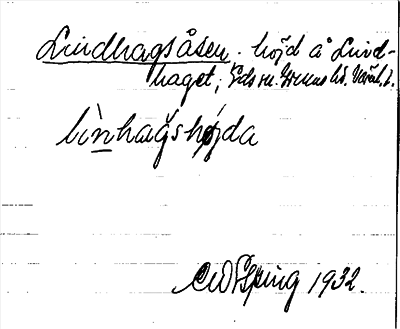 Lindhagsåsen; höjd å Lind-
haget; Eds sn. Grums hd. Värml. l.
lìnhagshøjda
1932.